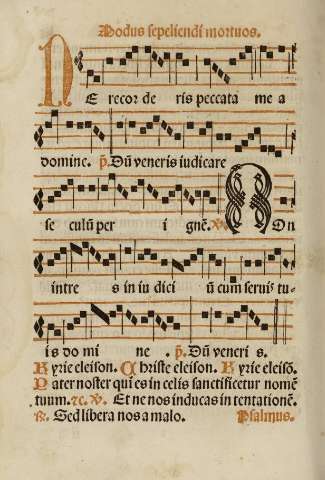 Modus sepeliendi mortuos.
NE recor de ris peccata me a
domine. p̃. Dũ veneris iudicare
se culũ per i gnẽ. ꝟ. NOn
intre s in iu dici ũ cum seruis tu-
is do mi ne. p̃. Dũ veneri s.
Kyrie eleison. Christe eleison. Kyrie eleisõ.
Pater noster qui es in celis sanctificetur nomẽ
tuum. ⁊c. ꝟ. Et ne nos inducas in tentationẽ.
℟. Sed libera nos a malo. Psalmus.